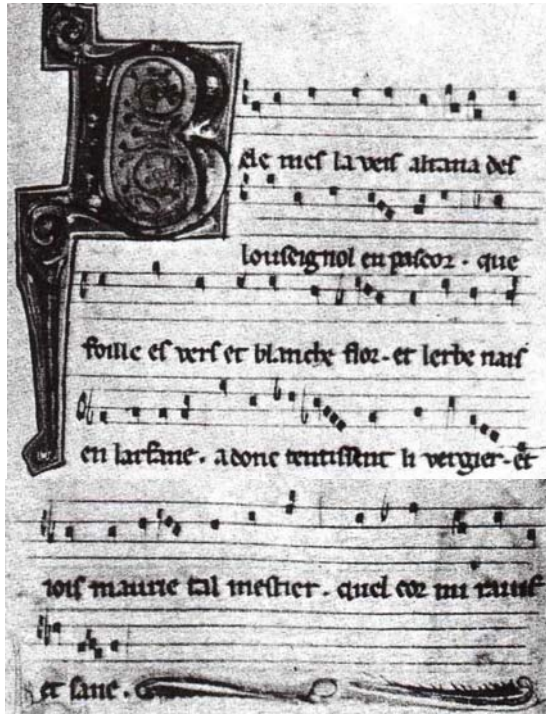 Bele mes la veis altana des
louseignol en pascor . que
foille es vers et blanche flor . et lerbe nais
en larfane . adonc tentissent li vergier . et
iois maurie tal mestier . quel cor mi rauis
et sane .